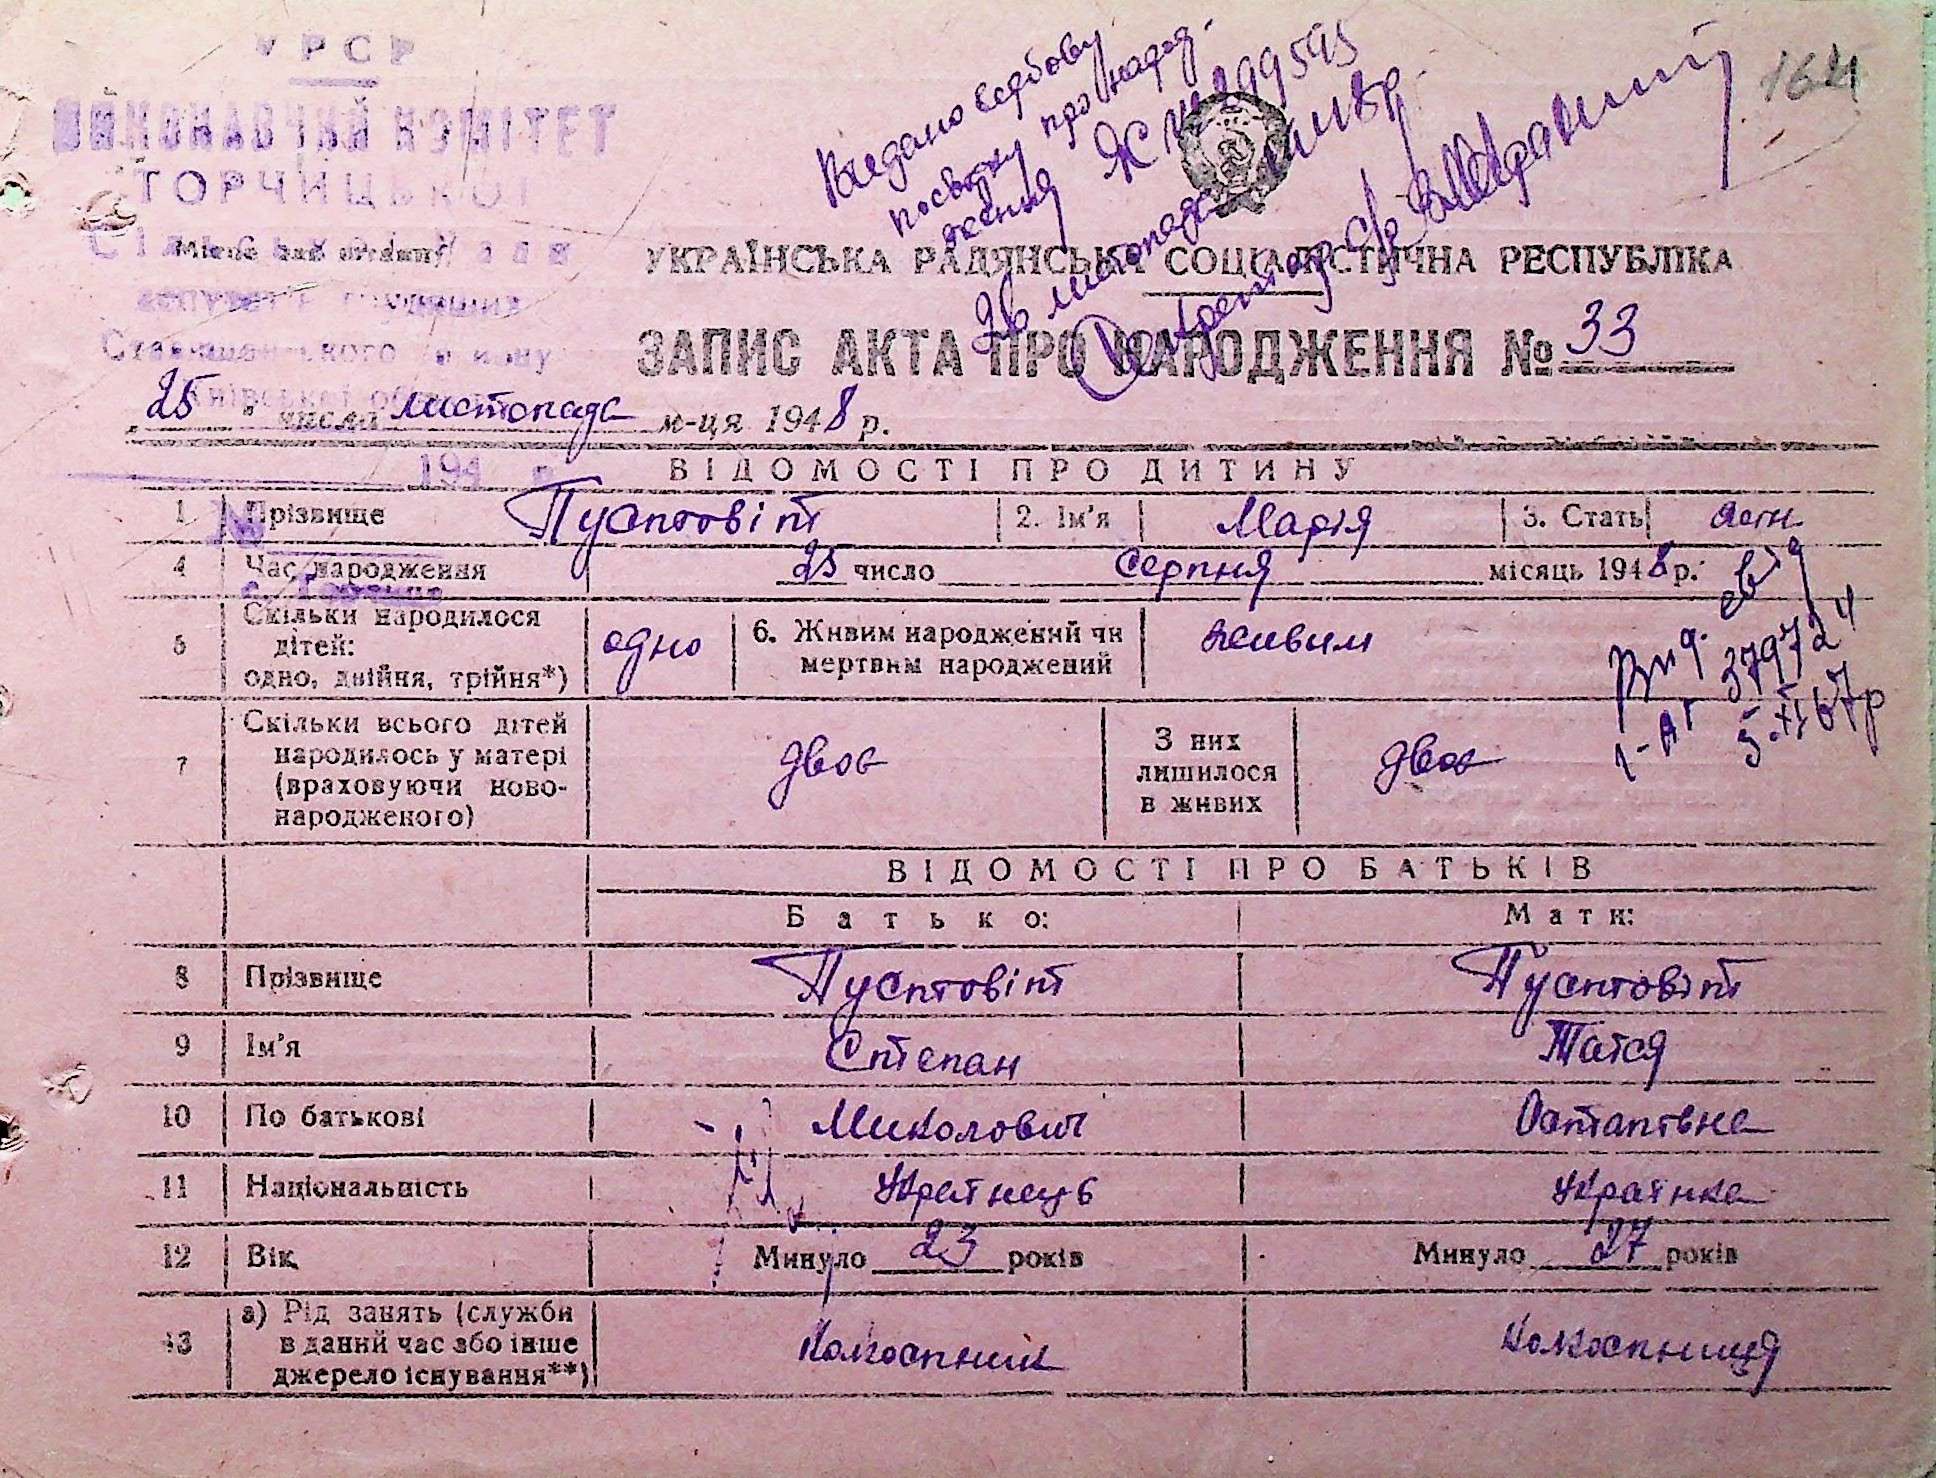 УРСР
ВИКОНАВЧИЙ КОМІТЕТ
ТОРЧИЦЬКОЇ
Місце для штампу
Київської
194 р.
Видано
посвідку про народ-
ження ЖС
26 листопада
Секретар с/р
164
УКРАЇНСЬКА РАДЯНСЬКА СОЦІАЛІСТИЧНА РЕСПУБЛІКА
ЗАПИС АКТА ПРО НАРОДЖЕННЯ № 33
„25" числа листопада м-ця 1948 р.
ВІДОМОСТІ ПРО ДИТИНУ
1 Прізвище Пустовіт 2. Ім'я Марія 3. Стать жін.
4 Час народження 25 число серпня місяць 1948 р.
5 Скільки народилося дітей: одно, двійня, трійня*) одно 6. Живим народжений чи мертвим народжений живим
7 Скільки всього дітей народилось у матері (враховуючи ново-народженого) двоє З них лишилося в живих двоє
Вид. 
І-АГ 379724
5.XI 67р
ВІДОМОСТІ ПРО БАТЬКІВ
Батько: Мати:
8 Прізвище Пустовіт Пустовіт
9 Ім'я Степан Татся
10 По батькові Миколович Остапівна
11 Національність Українець Українка
12 Вік Минуло 23 років Минуло 27 років
13 а) Рід занять (служби в даний час або інше джерело існування**) Колхоспник Колхоспниця